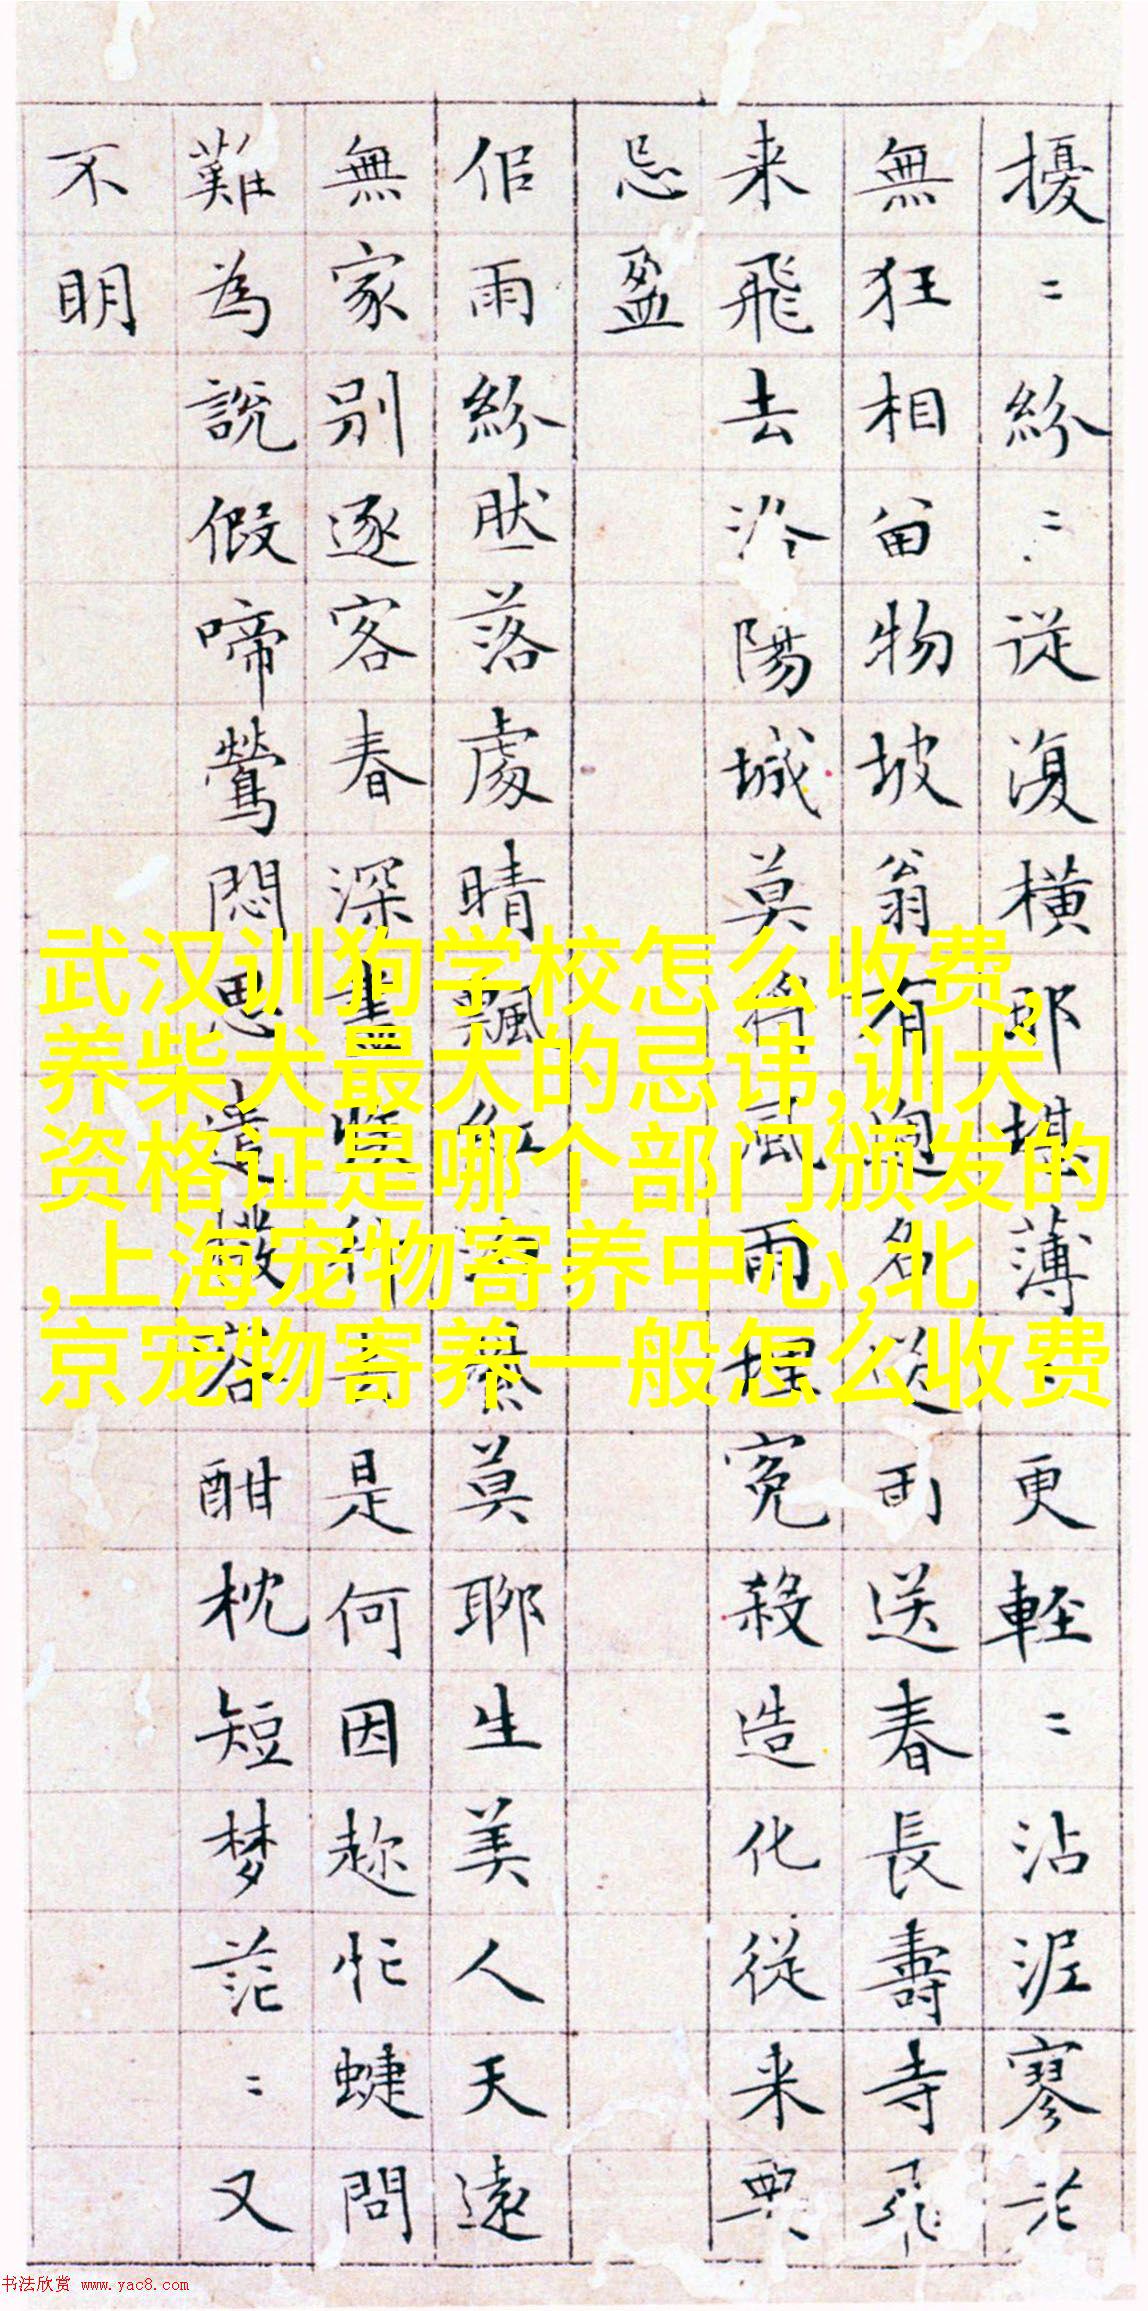 擾〻紛〻従復橫那堪薄更輕〻沾泥寥
無狂相留物坡翁有名送送春長壽寺飛
来飛去洛陽城莫為風雨埋冤殺造化從来
忌盈
佀雨紛然落處晴飄紅莫聊生美人天遠
無家别逐客春深盡是何因趂忙蜨問
難為說假啼鶯悶思遣撥酣枕短梦茫〻又
不明
武汉训狗学校怎么收费,
养柴犬最大的忌讳,训犬
资格证是哪个部门颁发的
,上海宠物寄养中心,北
京宠物寄养一般怎么收费
书法欣赏 www.yac8.com